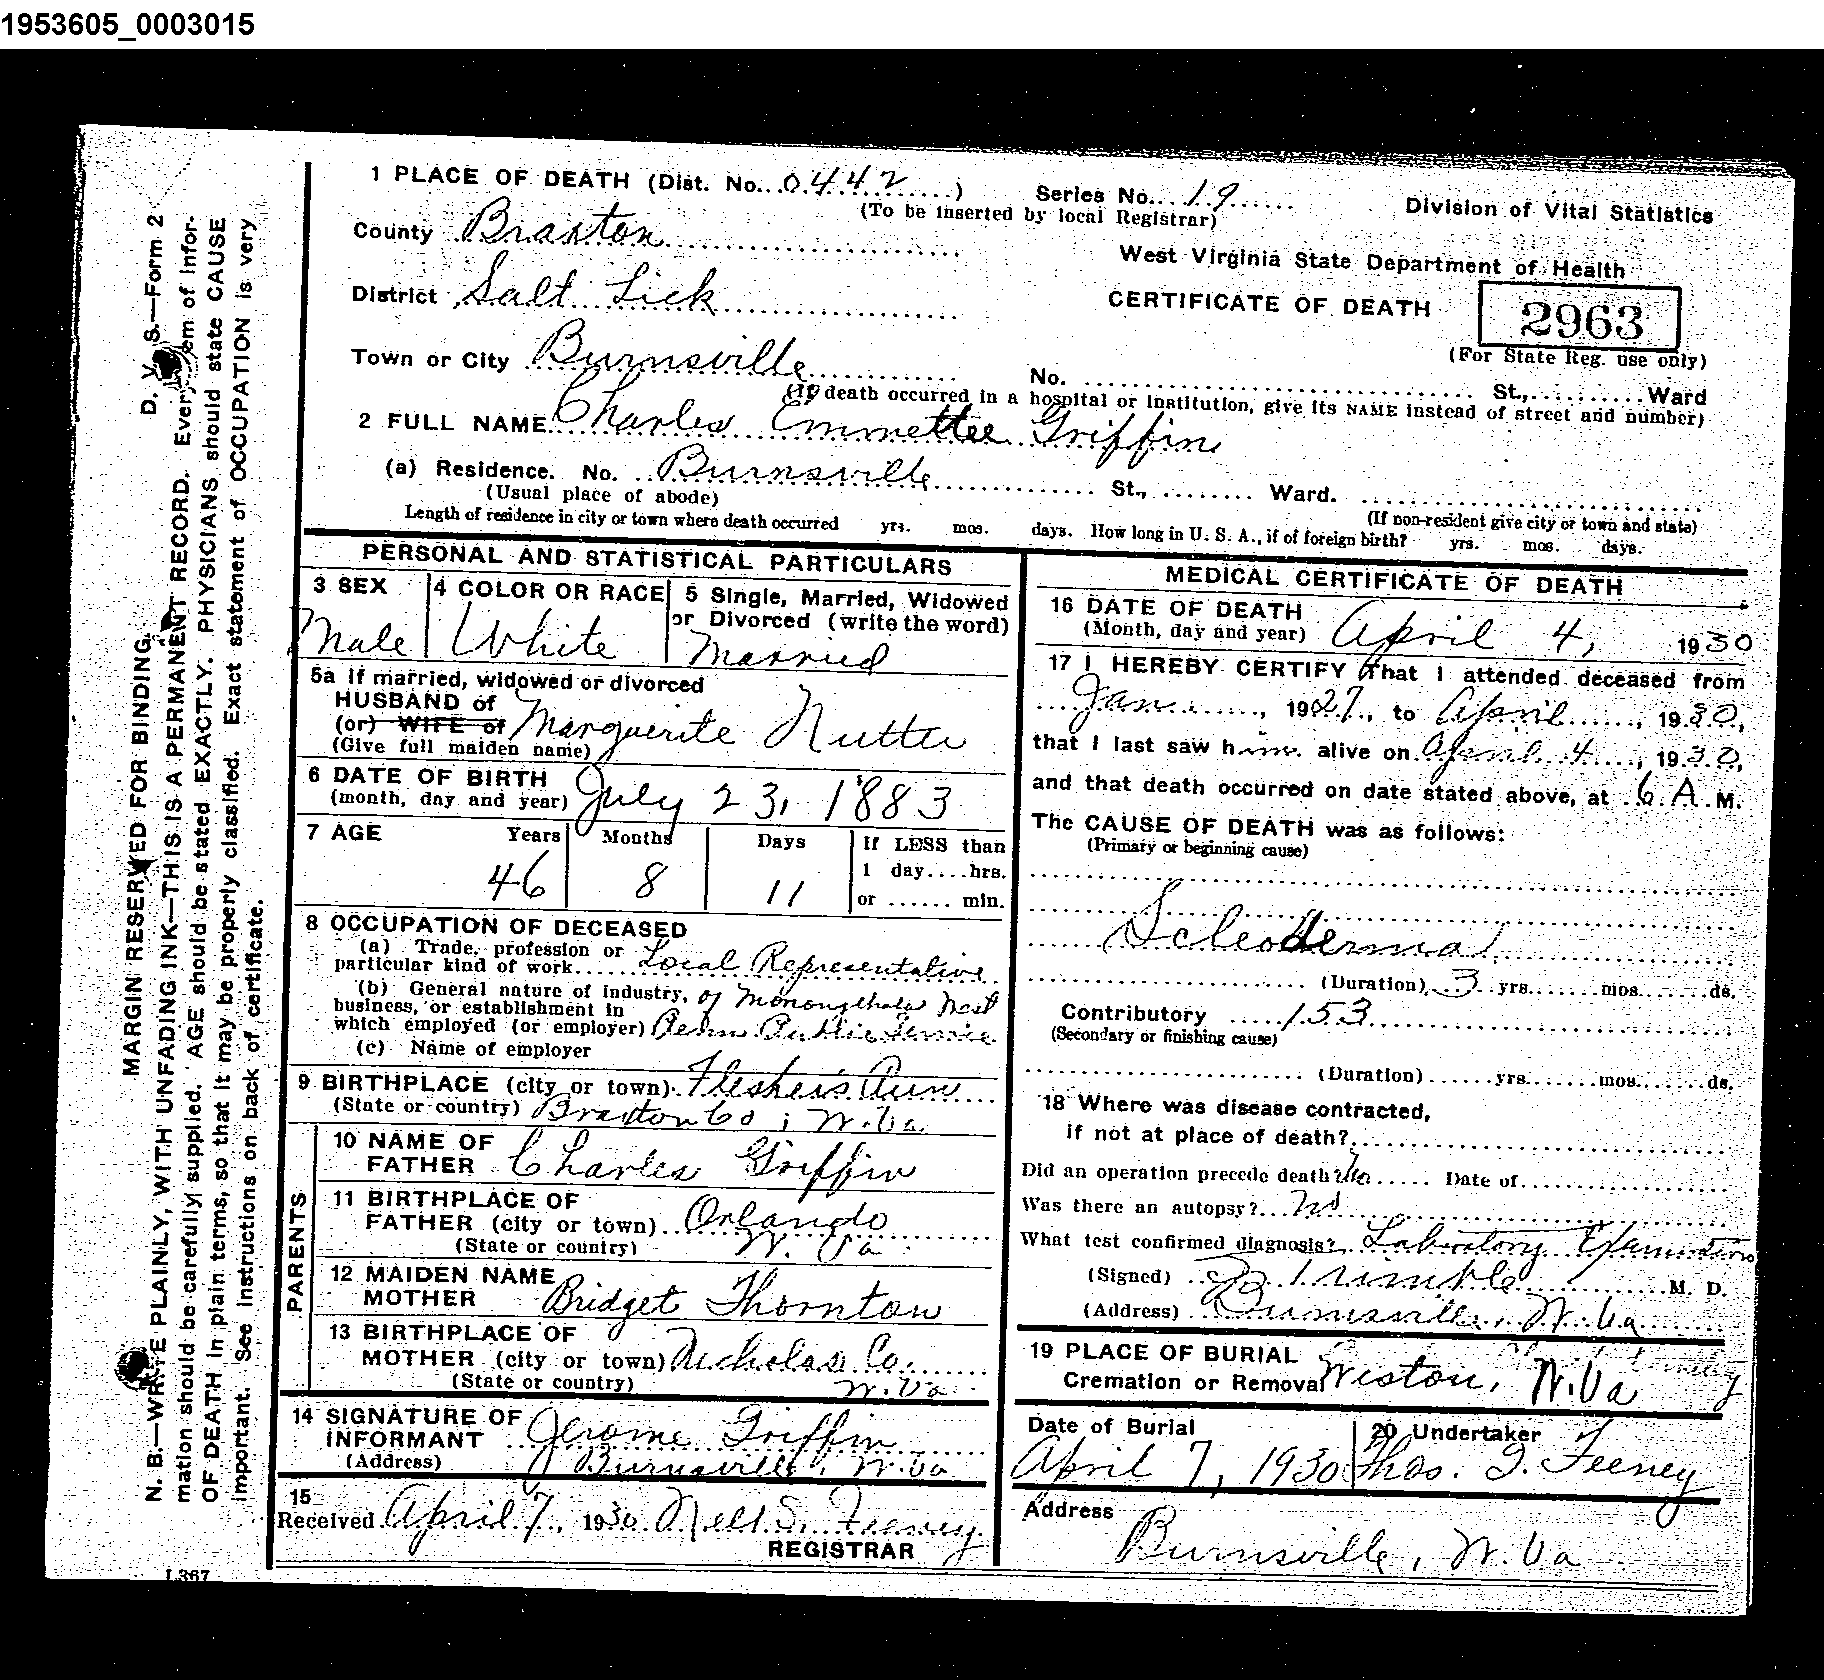 1953605_0003015
1 PLACE OF DEATH (Dist. No. 0442) Series No. 19
(To be inserted by local Registrar)
Division of Vital Statistics
County Braxton
West Virginia State Department of Health
District Salt Lick
CERTIFICATE OF DEATH 2963
(For State Reg. use only)
Town or City Burnsville
No. St., Ward
(If death occurred in a hospital or institution, give its NAME instead of street and number)
2 FULL NAME Charles Emmettee Griffin
(a) Residence. No. Burnsville St., Ward.
(Usual place of abode) (If non-resident give city or town and state)
Length of residence in city or town where death occurred yrs. mos. days. How long in U. S. A., if of foreign birth? yrs. mos. days.
PERSONAL AND STATISTICAL PARTICULARS
3 SEX 4 COLOR OR RACE 5 Single, Married, Widowed
or Divorced (write the word)
Male White Married
5a If married, widowed or divorced
HUSBAND of
(or) WIFE of Marguerite Nutter
(Give full maiden name)
6 DATE OF BIRTH
(month, day and year) July 23, 1883
7 AGE Years Months Days If LESS than
1 day....hrs.
46 8 11
or ...... min.
8 OCCUPATION OF DECEASED
(a) Trade, profession or
particular kind of work Local Representative
(b) General nature of industry,
business, or establishment in of Monongehala West
which employed (or employer) Penn Public Service
(c) Name of employer
9 BIRTHPLACE (city or town) Flesher's Run
(State or country) Braxton Co; W.Va
PARENTS
10 NAME OF
FATHER Charles Griffin
11 BIRTHPLACE OF
FATHER (city or town) Orlando
(State or country) W. Va
12 MAIDEN NAME
MOTHER Bridget Thornton
13 BIRTHPLACE OF
MOTHER (city or town) Nicholas Co.
(State or country) W.Va
14 SIGNATURE OF
INFORMANT Jerome Griffin
(Address) Burnsville, W.Va
15
Received April 7, 1930 Nell S. Feeney
REGISTRAR
MEDICAL CERTIFICATE OF DEATH
16 DATE OF DEATH
(Month, day and year) April 4, 1930
17 I HEREBY CERTIFY That I attended deceased from
Jan , 1927, to April , 1930,
that I last saw him alive on April 4 , 1930,
and that death occurred on date stated above, at 6 A. M.
The CAUSE OF DEATH was as follows:
(Primary or beginning cause)
Scleoderma
(Duration) 3 yrs. mos. ds.
Contributory 153
(Secondary or finishing cause)
(Duration) yrs. mos. ds.
18 Where was disease contracted,
if not at place of death?
Did an operation precede death? No Date of
Was there an autopsy? No
What test confirmed diagnosis? Laboratory Examination
(Signed) Trimble M. D.
(Address) Burnsville, W.Va
19 PLACE OF BURIAL
Cremation or Removal Weston, W.Va
Date of Burial 20 Undertaker
April 7, 1930 Thos. I. Feeney
Address
Burnsville, W.Va
D. V. S.—Form 2
MARGIN RESERVED FOR BINDING.
N. B.—WRITE PLAINLY, WITH UNFADING INK—THIS IS A PERMANENT RECORD. Every item of infor-
mation should be carefully supplied. AGE should be stated EXACTLY. PHYSICIANS should state CAUSE
OF DEATH in plain terms, so that it may be properly classified. Exact statement of OCCUPATION is very
important. See instructions on back of certificate.
L367